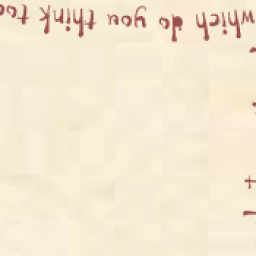 which do you think too